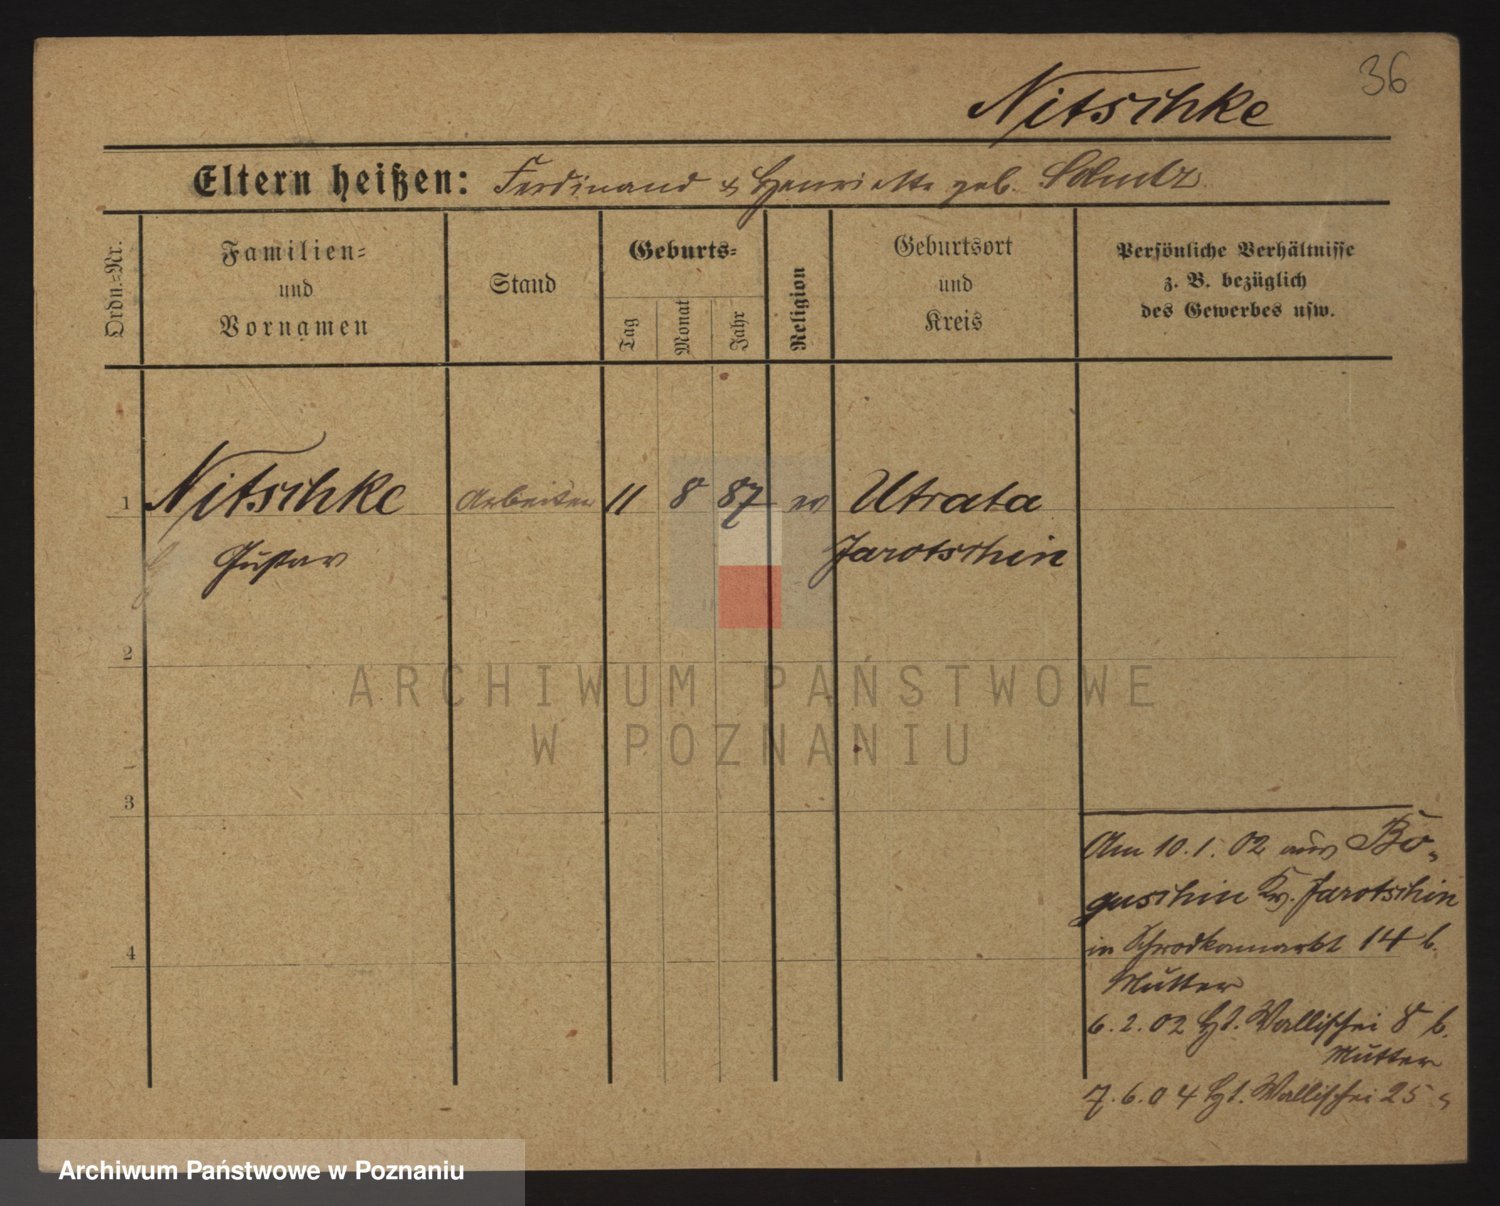 36
Nitschke
Eltern heißen: Ferdinand & Henriette geb. Schulz
Ordn.=Nr.
Familien=
und
Vornamen
Stand
Geburts=
Tag
Monat
Jahr
Religion
Geburtsort
und
Kreis
Persönliche Verhältnisse
z. B. bezüglich
des Gewerbes usw.
1 Nitschke Arbeiter 11 8 87 ev Utrata
Gustav Jarotschin
2
3
4
Am 10.1.02 aus Bo-
guschin Kr. Jarotschin
in Schrodkamarkt 14 b.
Mutter
6.2.02 Ht. Wallischei 8 b.
Mutter
7.6.04 Ht. Wallischei 25
ARCHIWUM PAŃSTWOWE
W POZNANIU
Archiwum Państwowe w Poznaniu